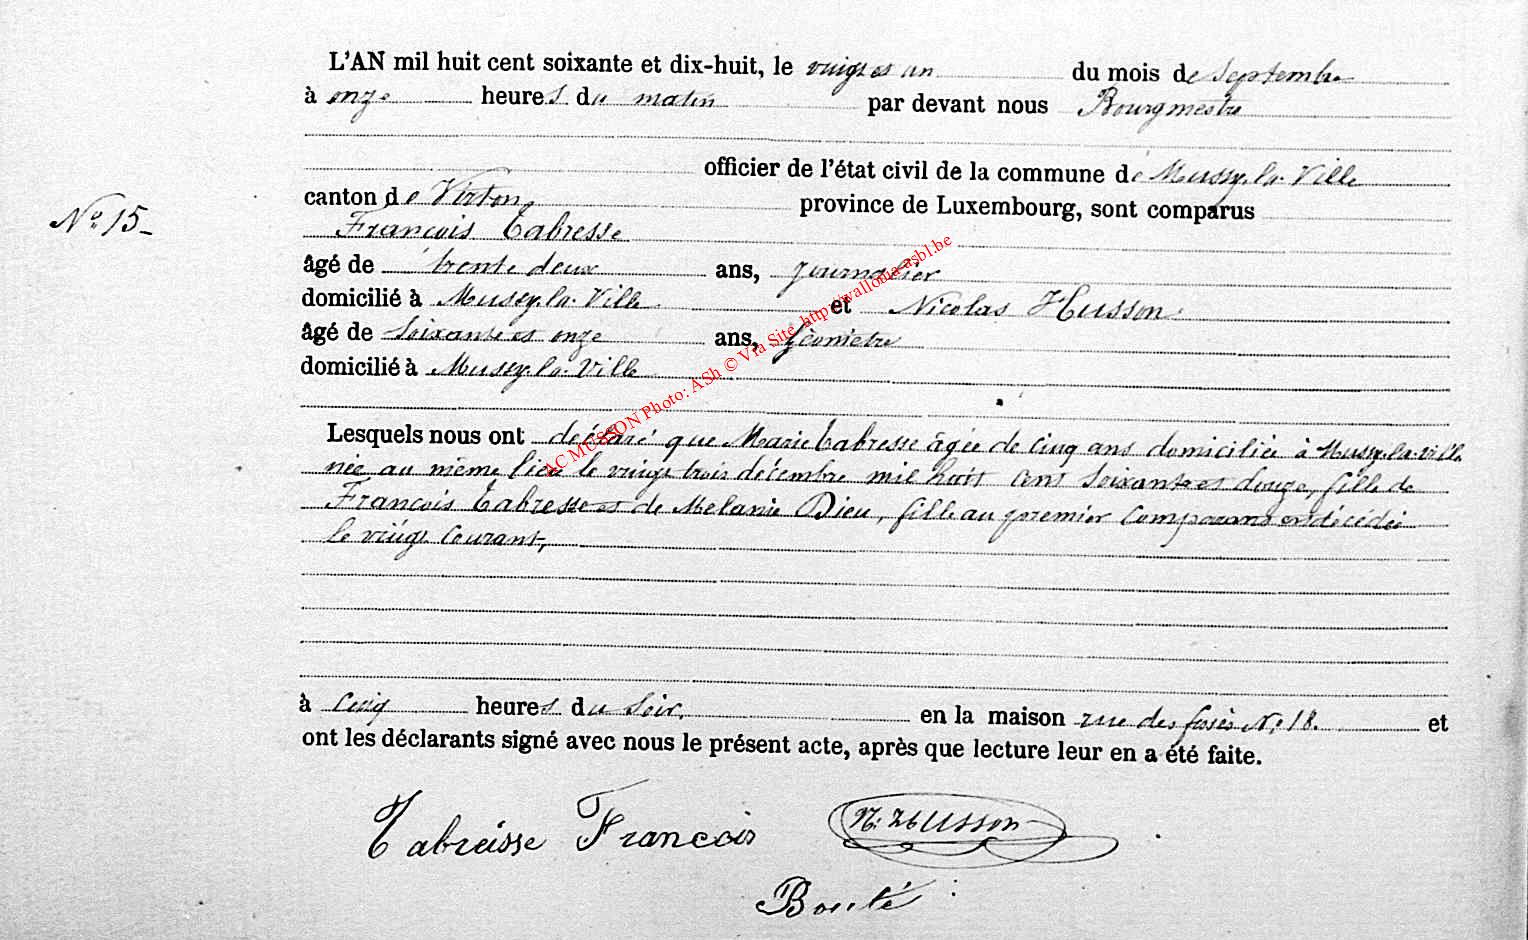 L'AN mil huit cent soixante et dix-huit, le vingt et un du mois de Septembre
à onze heures du matin par devant nous Bourgmestre
officier de l'état civil de la commune de Mussy-la-Ville
N° 15
canton de Virton, province de Luxembourg, sont comparus
François Tabresse
âgé de trente deux ans, journalier
domicilié à Mussy-la-Ville et Nicolas Husson
âgé de soixante et onze ans, géomètre
domicilié à Mussy-la-Ville
AC MUSSON Photo: ASh © Via Site http://wallonia-asbl.be
Lesquels nous ont déclaré que Marie Tabresse âgée de cinq ans domiciliée à Mussy-la-Ville
née au même lieu le vingt trois décembre mil huit cent soixante et douze, fille de
François Tabresse et de Melanie Dieu, fille au premier comparant est décédée
le vingt courant,
à cinq heures du soir, en la maison rue des fossés N° 18. et
ont les déclarants signé avec nous le présent acte, après que lecture leur en a été faite.
Tabreisse Francois N. Husson
Bouté